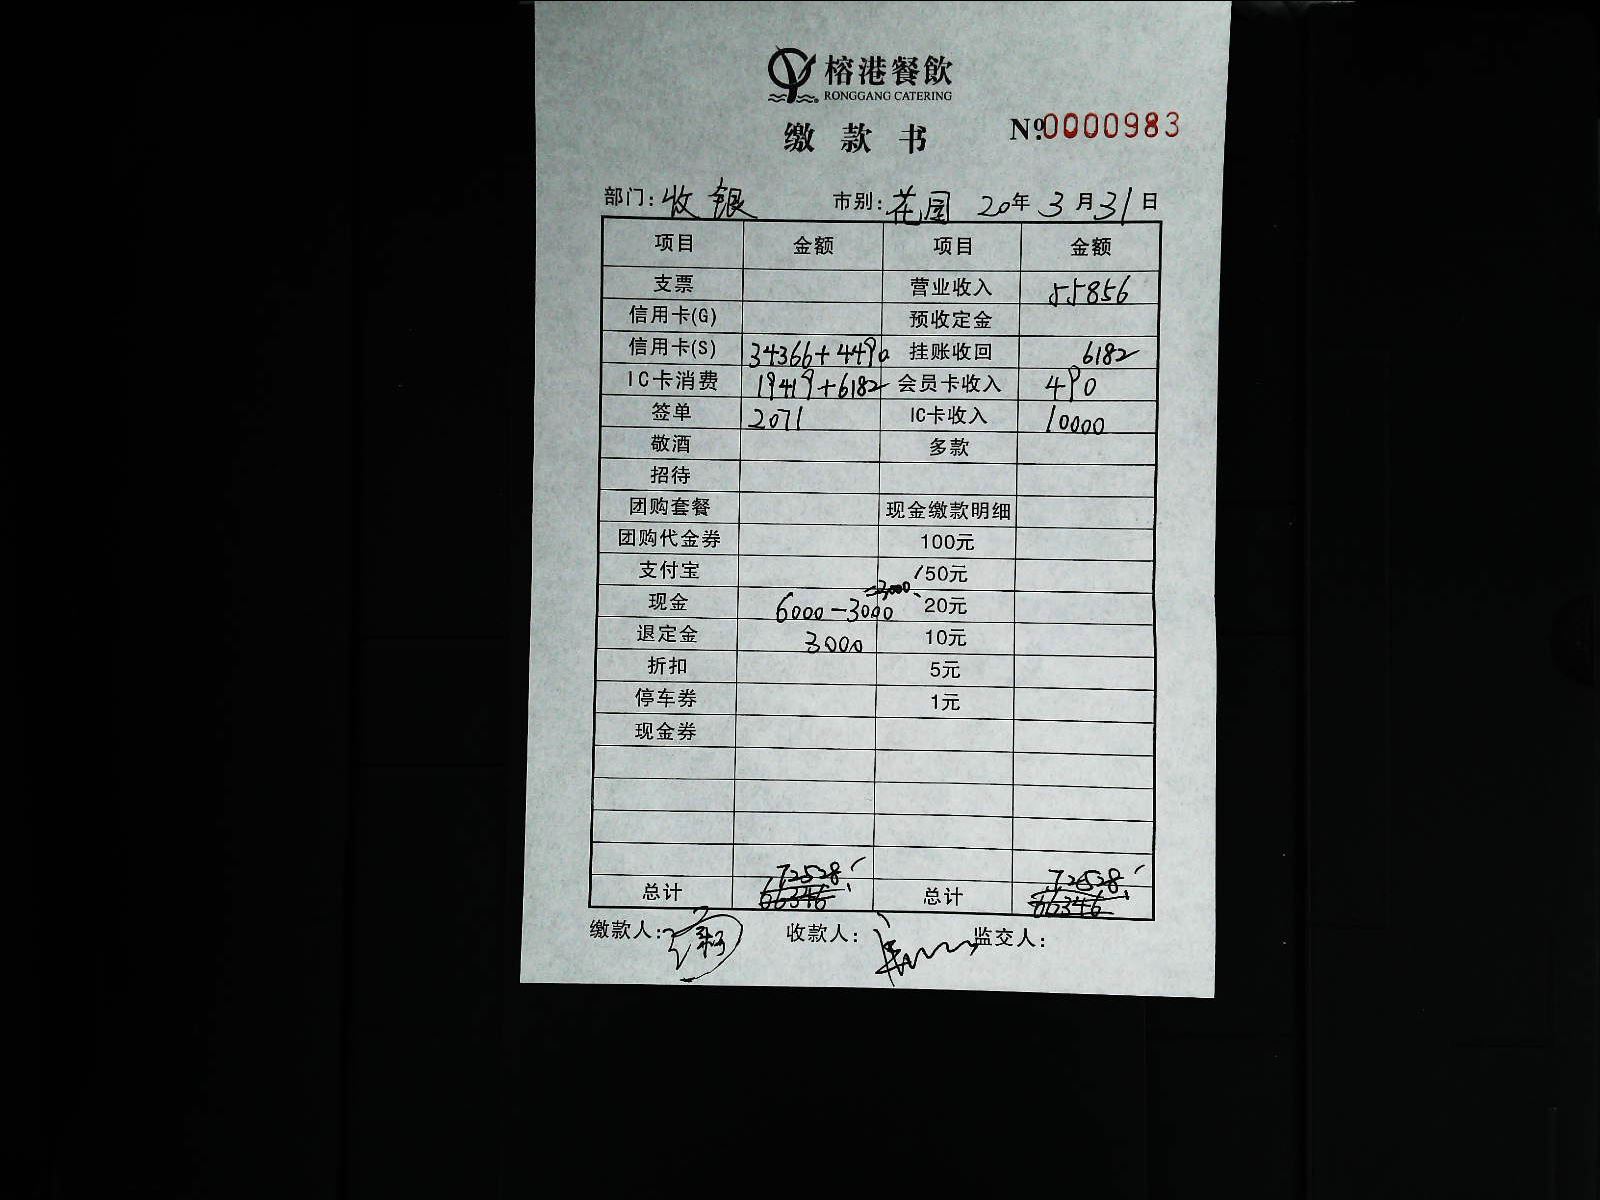 榕港餐飲
RONGGANG CATERING
缴款书
Nº:0000983
部门:收银 市别:花园 20年3月31日
项目 金额 项目 金额
支票 营业收入 55856
信用卡(G) 预收定金
信用卡(S) 34366+4490 挂账收回 6182
IC卡消费 19419+6182 会员卡收入 490
签单 2071 IC卡收入 10000
敬酒 多款
招待
团购套餐 现金缴款明细
团购代金券 100元
支付宝 50元
=3000
现金 6000-3000 20元
退定金 3000 10元
折扣 5元
停车券 1元
现金券
72528 72528
总计 66346 总计 66346
缴款人: 收款人: 监交人: